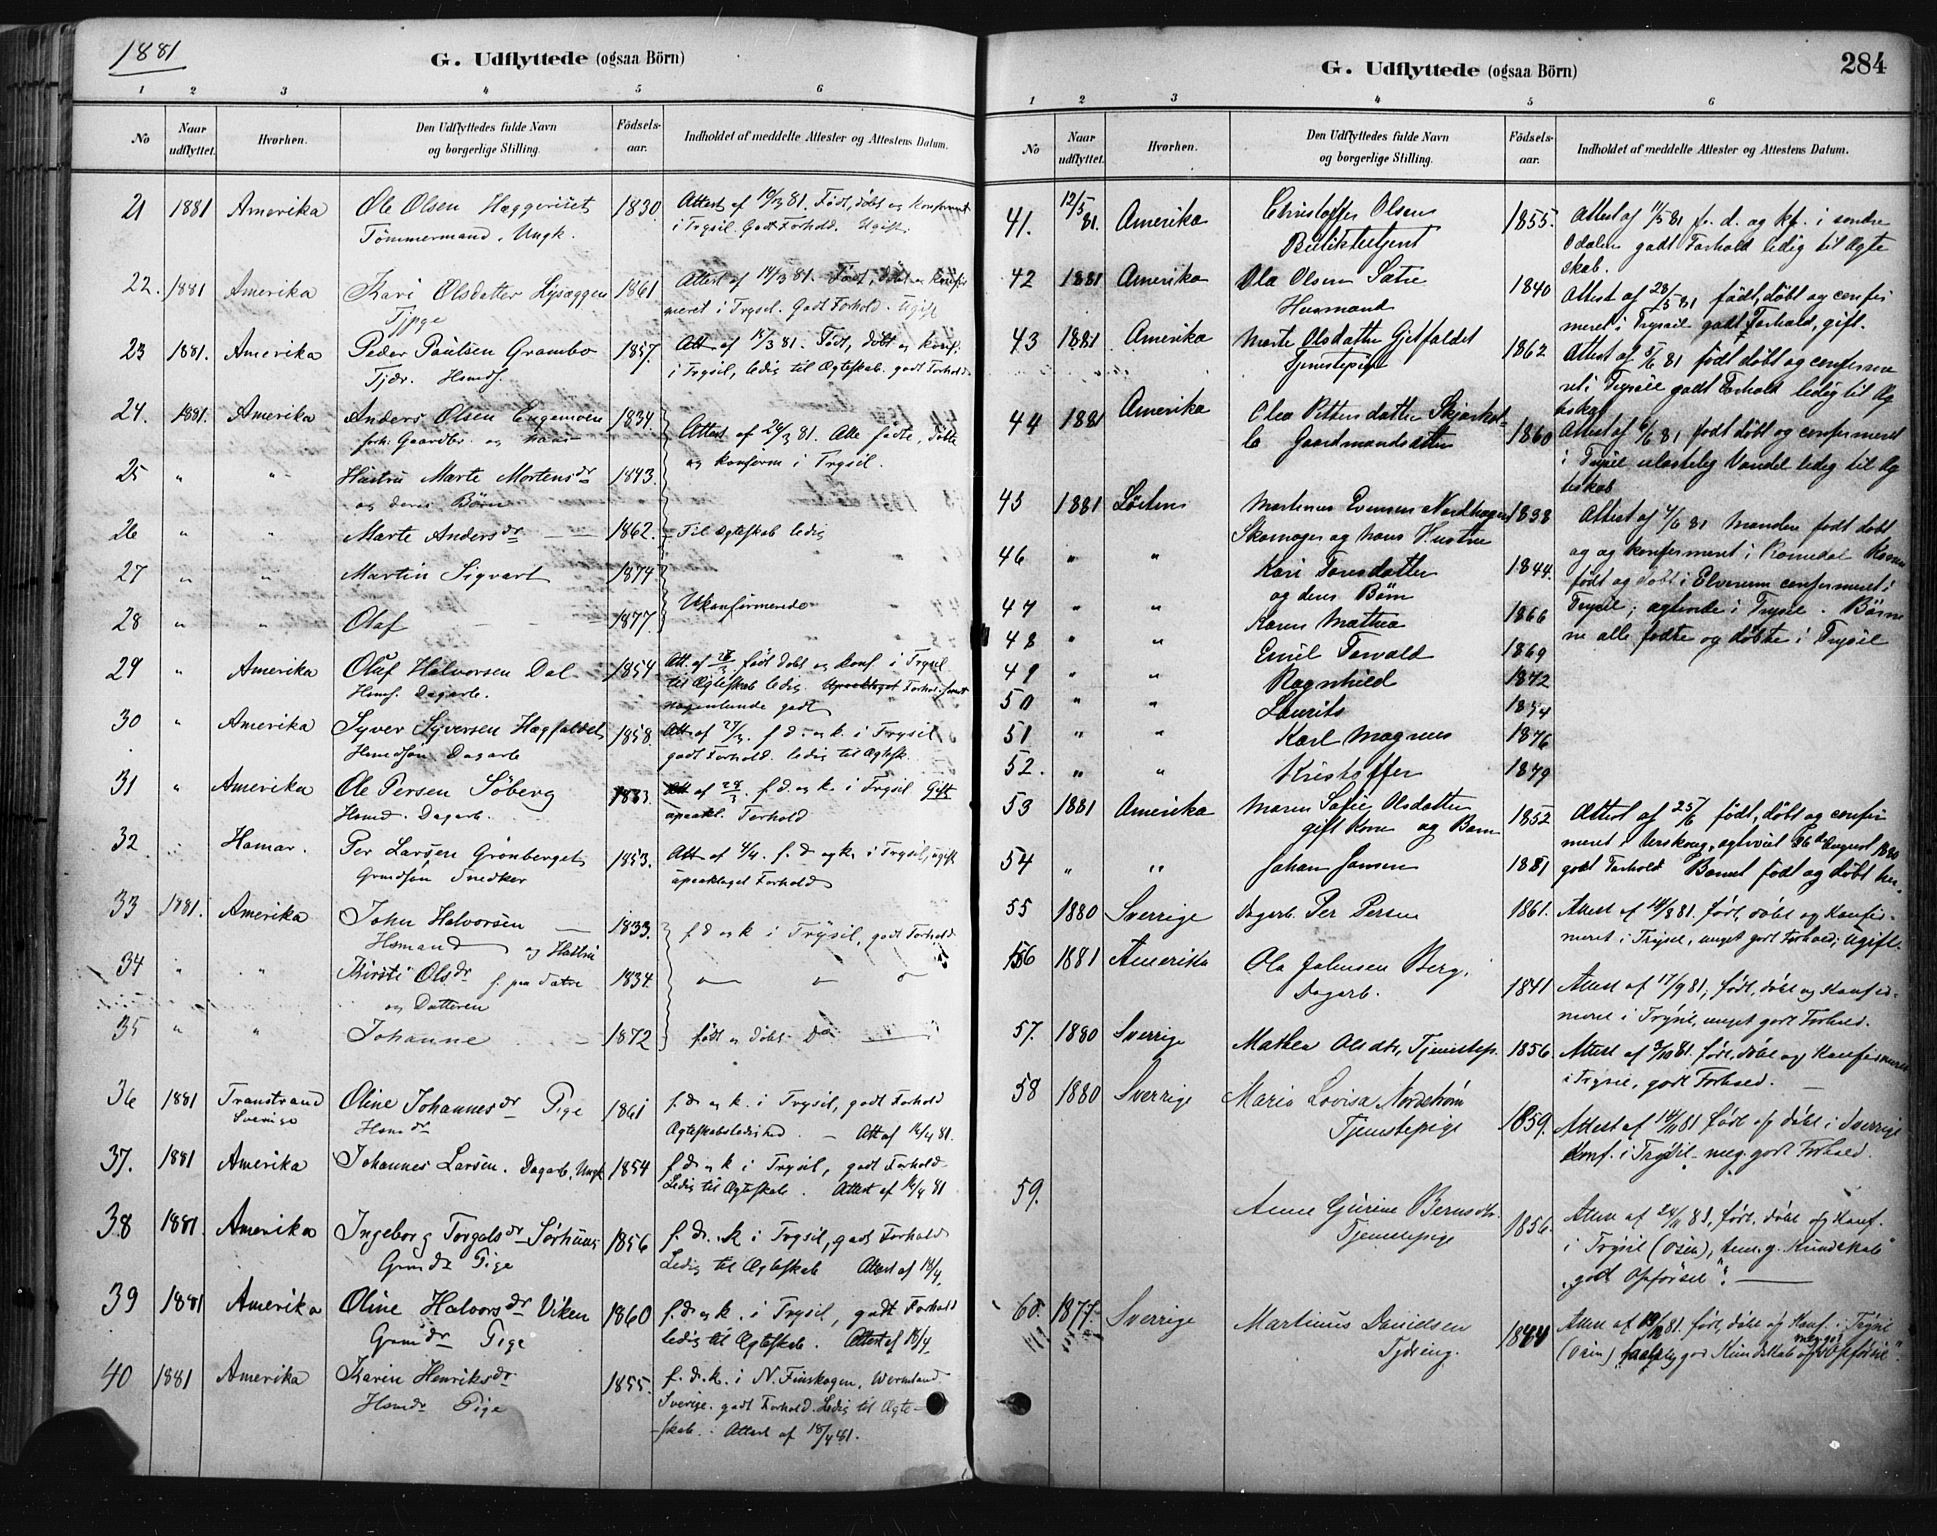 1881
G. Udflyttede (ogsaa Börn)
1 2 3 4 5 6
No
Naar udflyttet.
Hvorhen.
Den Udflyttedes fulde Navn og borgerlige Stilling.
Födsels-aar.
Indholdet af meddelte Attester og Attestens Datum.
21 1881 Amerika Ole Olsen Hæggeriset 1830 Attest af 10/3 81. Født, døbt og konfirmeret
Tömmermand, Ungk. i Trysil. Godt Forhold. Ugift.
22. 1881 Amerika Kari Olsdatter 1861 Attest af 14/3 81. Født, døbt og konfir
meret i Trysil. Godt Forhold. Ugift
23 1881. Amerika Peder Paulsen Grambo 1857. Att af 15/3 81. Født, døbt og konf.
Tjdr. Hsmds. i Trysil, ledig til Ægteskab. godt Forhold
24. 1881. Amerika Anders Olsen Engemoen 1834. Attest af 26/3 81. Alle fødte, døbte
forh. Gaardbr. og hans og konfirm i Trysil.
25 " " Hustru Marte Mortensdr 1843.
og deres Börn
26 " " Marte Andersdr 1862. Til Ægteskab ledig
27 " " Martin Sigvart 1874
28 " " Olaf 1877. Ukonfirmerede
29 " Amerika Oluf Halvorsen Dal 1854 Att. af 28/3 født døbt og konf i Trysil
Hsms. Dagarb. til Ægteskab ledig. Upaaklaget Forhold
nogenlunde godt
30 " Amerika Syver Syversen Hægfaldet 1858. Att af 27/3. f. d. og k. i Trysil
Hsmdsön Dagarb godt Forhold. ledig til Ægtesk.
31 " Amerika Ole Persen Söberg 1833. Att af 28/3 f. d. og k. i Trysil Gift
Hsmd. Dagarb. upaakl. Forhold
32 Hamar. Per Larsen Grönberget 1853. Att af 4/4. f. d og k. i Trysil, ugift
Grmdsön Snedker upaaklaget Forhold
33 1881. Amerika John Halvorsen 1833. f d og k i Trysil, godt Forhold
Hsmand og Hustru
34 " " Kirsti Olsdr 1834.
og Datteren
35 " " Johanne 1872 født og døbt Do
36 1881 Transtrand Oline Johannesdr Pige 1861 f. d og k. i Trysil, godt Forhold
Sverige Hsmdr Ægteskabsledighed. Att af 16/4 81.
37. 1881 Amerika Johannes Larsen. Dagarb. Ungk 1854 f. d og k i Trysil, godt Forhold
Ledig til Ægteskab. Attest af 16/4 81
38 1881. Amerika Ingeborg Torgalsdr Sörhuus 1856 f. d. k i Trysil, godt Forhold
Grmdr Pige Ledig til Ægteskab Attest af 18/4.
39 1881 Amerika Oline Halvorsdr Viken 1860 f. d og k. i Trysil, godt Forhold
Grmdr Pige ledig til Ægteskab. Attest af 18/4.
40 1881 Amerika Karen Henriksdr 1855. f. d. k. i N. Finskogen, Wermland
Hsmdr Pige Sverige. godt Forhold. Ledig til Ægte-
skab. Attest af 18/4 81.
G. Udflyttede (ogsaa Börn)
284
1 2 3 4 5 6
No
Naar udflyttet.
Hvorhen.
Den Udflyttedes fulde Navn og borgerlige Stilling.
Födsels-aar.
Indholdet af meddelte Attester og Attestens Datum.
41. 12/5 81. Amerika Christoffer Olsen 1855. Attest af 11/5 81 f. d. og kf. i søndre
Butikbetjent Odalen godt Forhold ledig til Ægte
skab.
42 1881 Amerika Ola Olsen Sætre 1840 Attest af 28/5 81 født, døbt og confir
Husmand meret i Trysil godt Forhold, gift.
43 1881 Amerika Marte Olsdatter Gjetfaldet 1862 Attest af 5/6 81 født døbt og confirme
Tjenestepige ret i Trysil godt Forhold ledig til Æg
teskab
44 1881 Amerika Olea Pettersdatter 1860 Attest af 6/6 81 født døbt og confirmeret
Gaardmandsdatter i Trysil ulastelig Vandel ledig til Æg
teskab
45 1881 Løiten Martinus Evensen Nordhagen 1838 Attest af 4/6 81 Manden født døbt
Skomager og hans Hustru og konfirmeret i Romedal Konen
46 " " Kari Toresdatter 1844. født og døbt i Elverum confirmeret i
og deres Børn Trysil; ægteviede i Trysil. Børne
47 " " Karen Mathea 1866 ne alle fødte og døbte i Trysil
48 " " Emil Torvald 1869
49 " " Ragnhild 1872
50 " " Laurits 1874
51 " " Karl Magnus 1876
52. " " Kristoffer 1879
53 1881 Amerika Maren Sofie Olsdatter 1852 Attest af 25/6 født, døbt og confir
gift Kone og Barn meret i Aurskoug, ægteviet August 1880
54 " " Johan Jansen 1881 godt Forhold Barnet født og døbt her.
55 1880 Sverrige Dagarb. Per Persen 1861. Attest af 14/8 81. født, døbt og Konfir-
meret i Trysil, meget godt Forhold; Ugift.
56 1881 Amerika Ola Johnsen Berg. 1841 Attest af 17/9 81, født, døbt og Konfir-
Dagarb. meret i Trysil, meget godt Forhold.
57. 1880 Sverrige Mathea Olsdtr, Tjenestep. 1856 Attest af 3/10 81. født, døbt og Konfirmeret
i Trysil, godt Forhold.
58 1880 Sverrige Maria Lovisa Nordström 1859. Attest af 14/11 81 født og døbt i Sverrige
Tjenestepige Konf. i Trysil. meg. godt Forhold.
59. Anne Gurine Berntsdtr. 1856. Attest af 24/11 81, født, døbt og Konf.
Tjenestepige i Trysil (Osen), "tem. g. Kundskab"
"god Opførsel".
60. 1877. Sverrige Martinus Danielsen 1844 født, døbt og Konf. i Trysil
(Osen) god Kundskab og Opførsel".